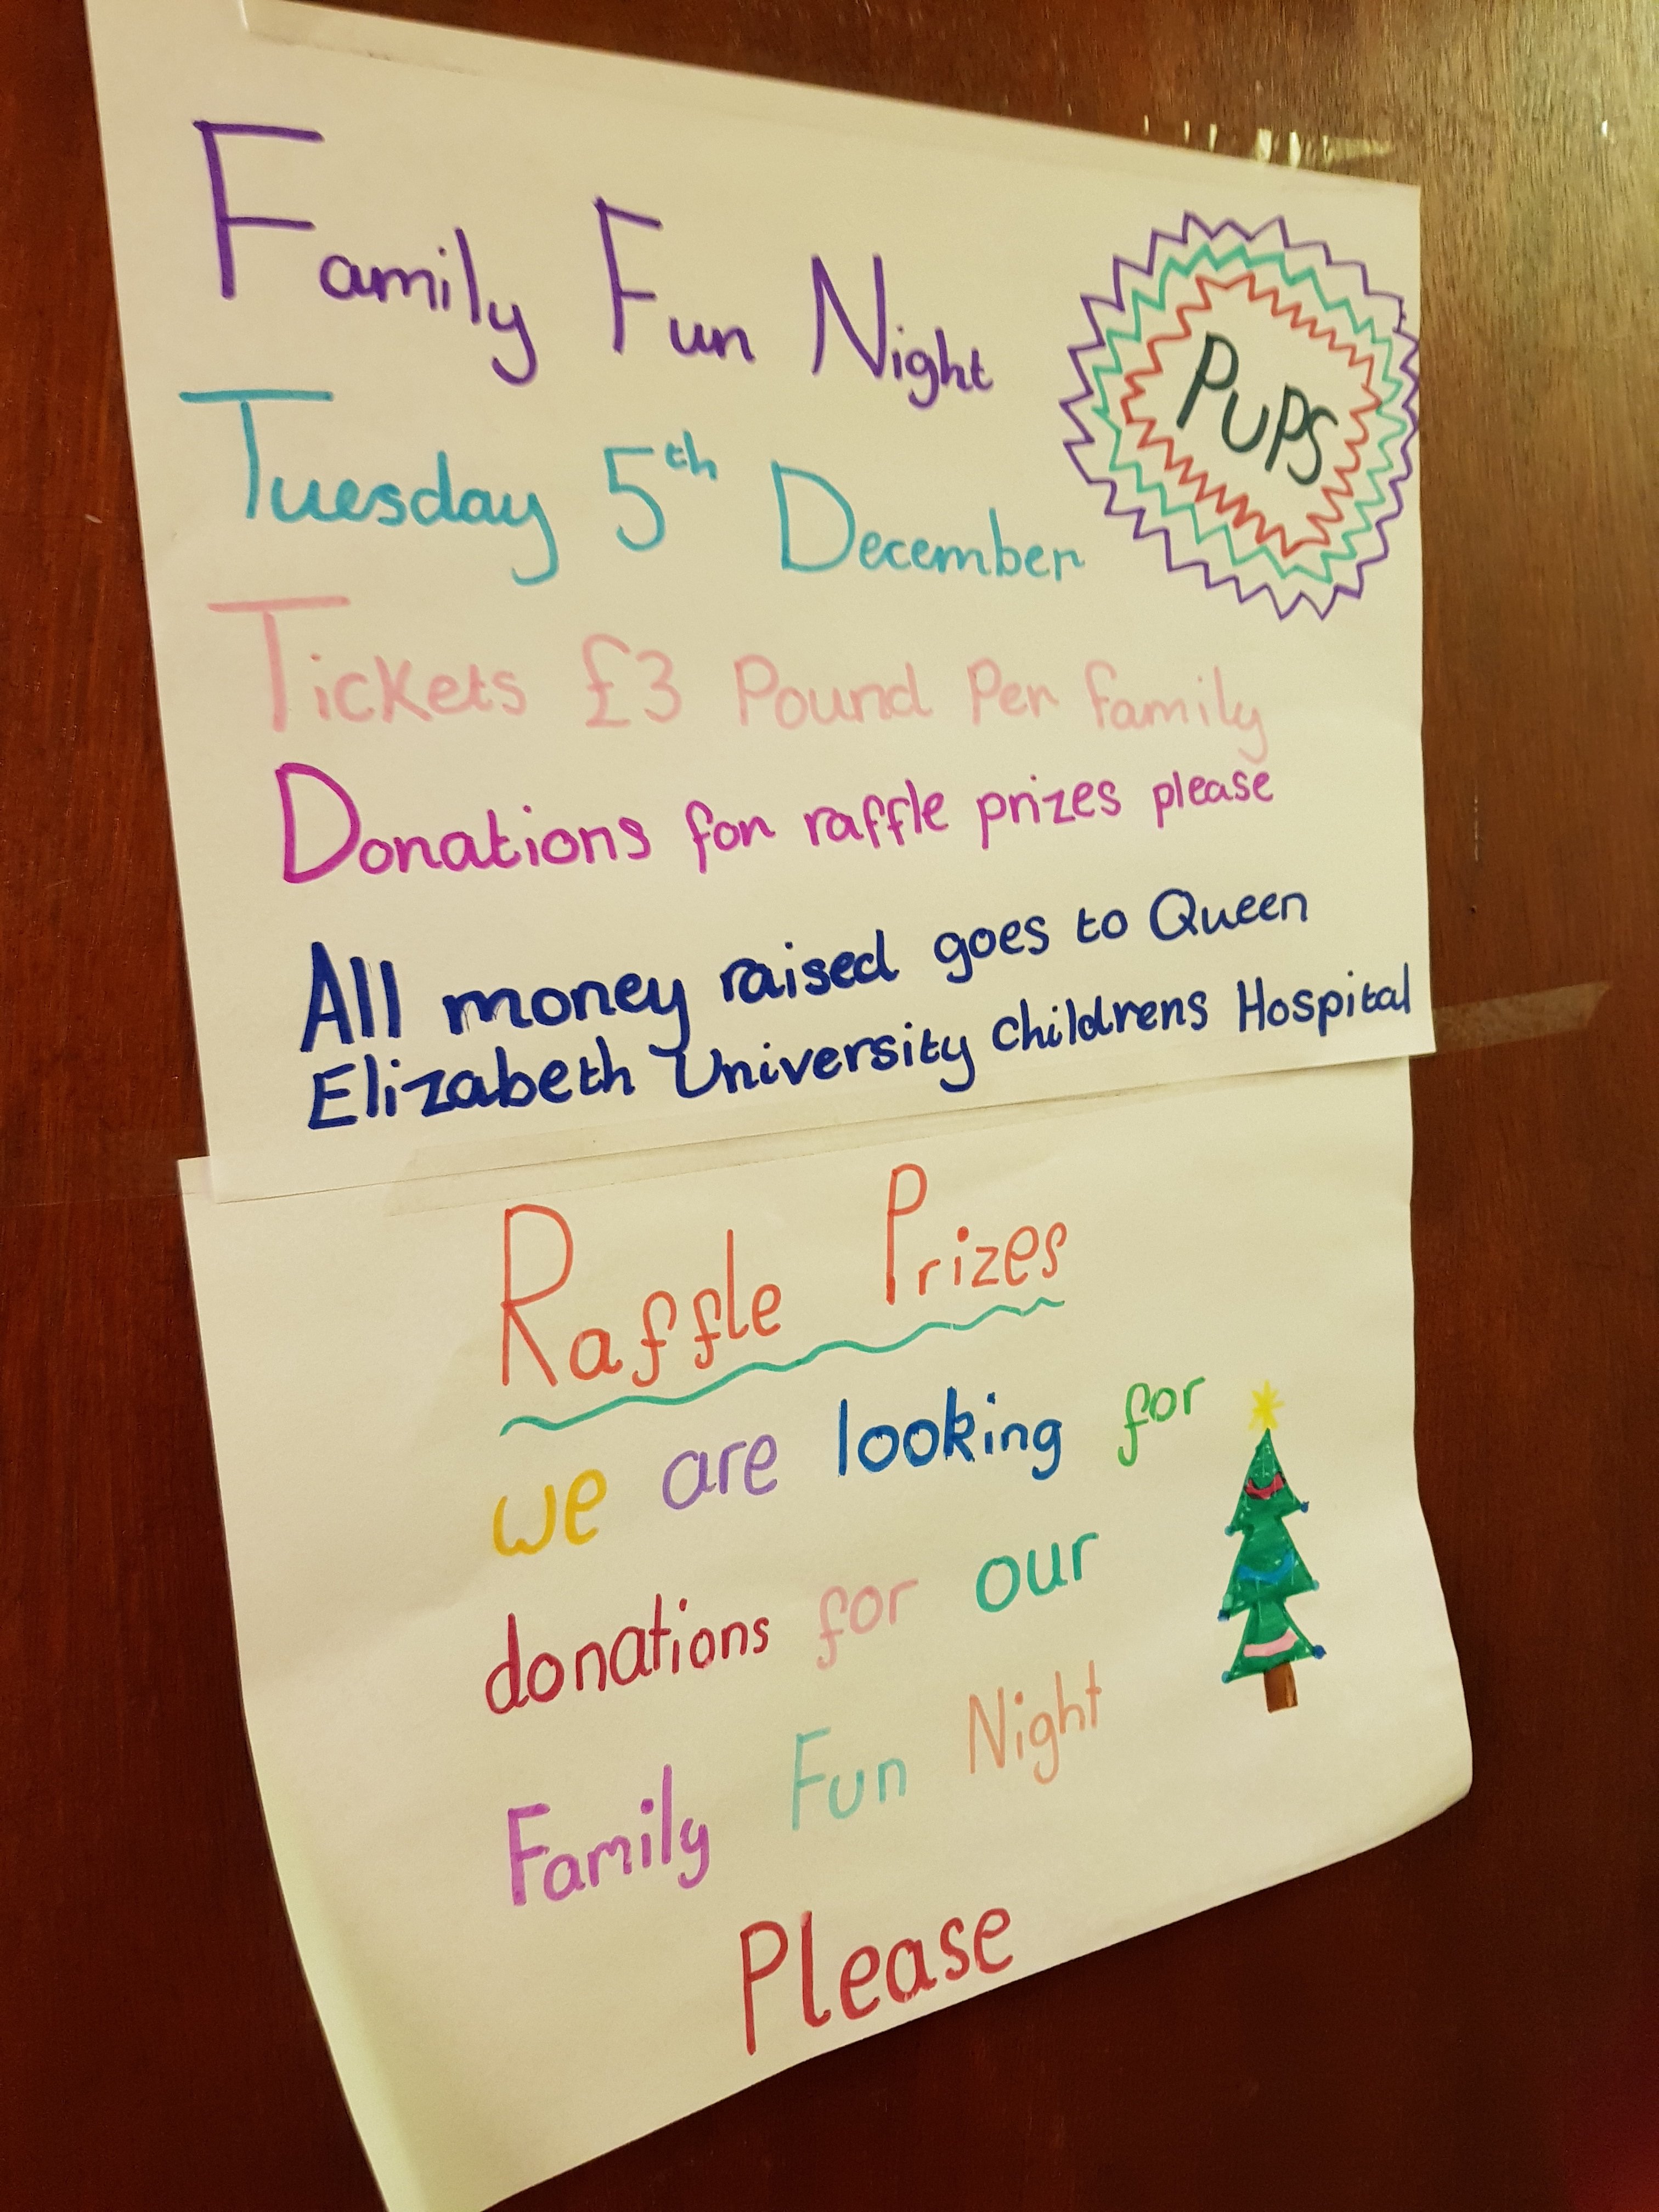 Family Fun Night
PUPS
Tuesday 5th December
Tickets £3 Pound Per family
Donations for raffle prizes please
All money raised goes to Queen
Elizabeth University childrens Hospital
Raffle Prizes
we are looking for
donations for our
Family Fun Night
Please